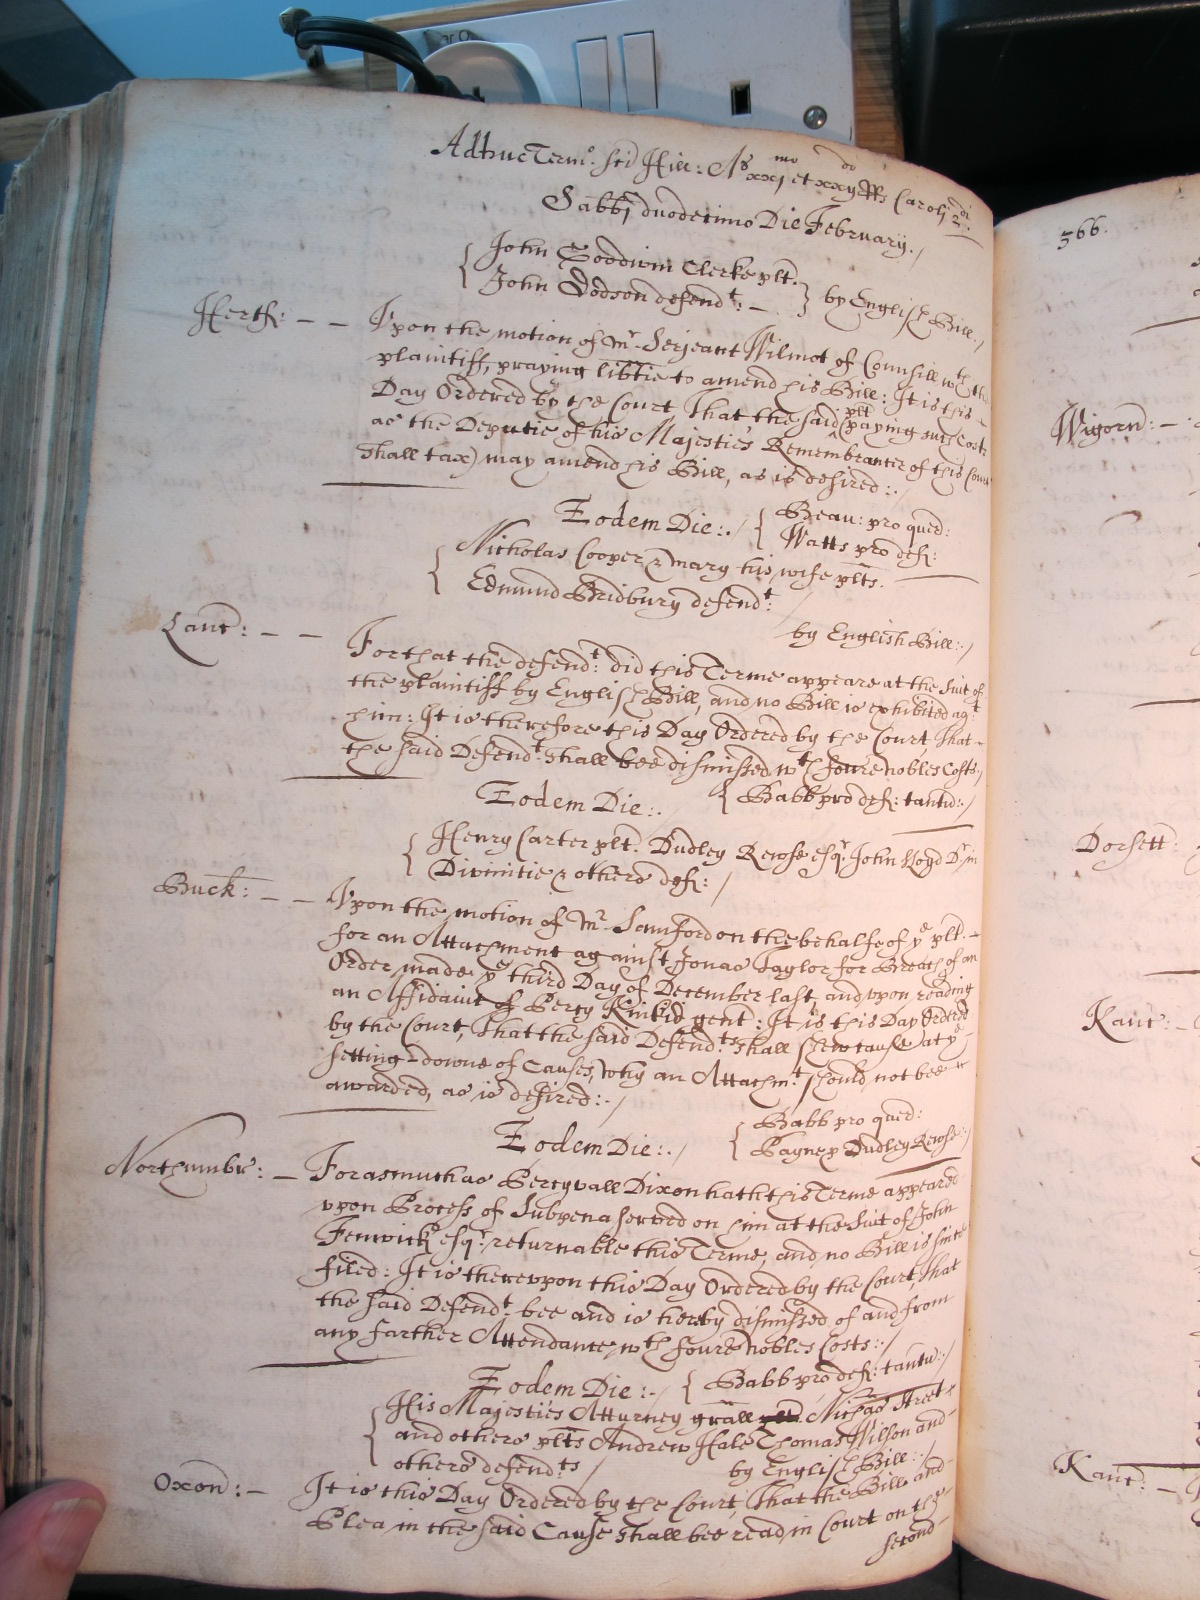 Adhuc Term: Sci Hill: Ao xxj mo et xxij do RRs Caroli 2di
Sabbi duodecimo Die February./
John Goodwin Clerke plt.
John Dodson defendt: — } by English Bill:/
Hertf: — — Upon the motion of Mr. Serjeant Wilmot of Counsill wth the
plaintiff, praying libtie to amend his Bill: It is this
Day Ordered by the Court That the said plt (paying such Costs
as the Deputie of his Majesties Remembrancer of this Court
shall tax) may amend his Bill, as is desired:./
Eodem Die:./ { Beau: pro quer:
Watts pro def:
Nicholas Cooper & Mary his wife plts.
Edmund Bridbury defendt:
by English Bill:./
Lanc: — — For that the defendt: did this Terme appeare at the Suit of
the plaintiff by English Bill, and no Bill is exhibited agt:
him: It is therefore this Day Ordered by the Court That
the said Defendt. shall bee dismissed wth foure nobles Costs./
Eodem Die:. { Babb pro def: tantu:./
Henry Carter plt. Dudley Rewse esqr. John Lloyd Dr. in
Divinitie & others def: /
Buck: — — Upon the motion of Mr. Samford on the behalfe of ye plt. —
for an Attachment against Jonas Taylor for Breach of an
Order made ye third Day of December last, and upon reading
an Affidavit of Percy Kinkid gent: It is this Day Ordered
by the Court, That the said Defendts: shall shew cause at ye
setting-downe of Causes, why an Attachmt: should not bee
awarded, as is desired:./
Eodem Die:./ { Babb pro quer:
Payne p Dudley Rewse:./
Northumbr: — Forasmuch as Percyvall Dixon hath this Terme appeared
upon Process of Subpena served on him at the Suit of John
Fenwick esqr: returnable this Terme, and no Bill is since
filed: It is thereupon this Day Ordered by the Court, That
the said Defendt. bee and is hereby dismissed of and from
any farther Attendance wth foure nobles Costs:./
Eodem Die:./ { Babb pro def: tantu:./
His Majesties Atturney grall Nichas Street
and others plts Andrew Hale Thomas Wilson and
others defendts / by English Bill:./
Oxon: — It is this Day Ordered by the Court, That the Bill and
Plea in the said Cause shall bee read in Court on the
second
366.
Wigorn: —
Dorsett:
Kanc: —
Kanc: —